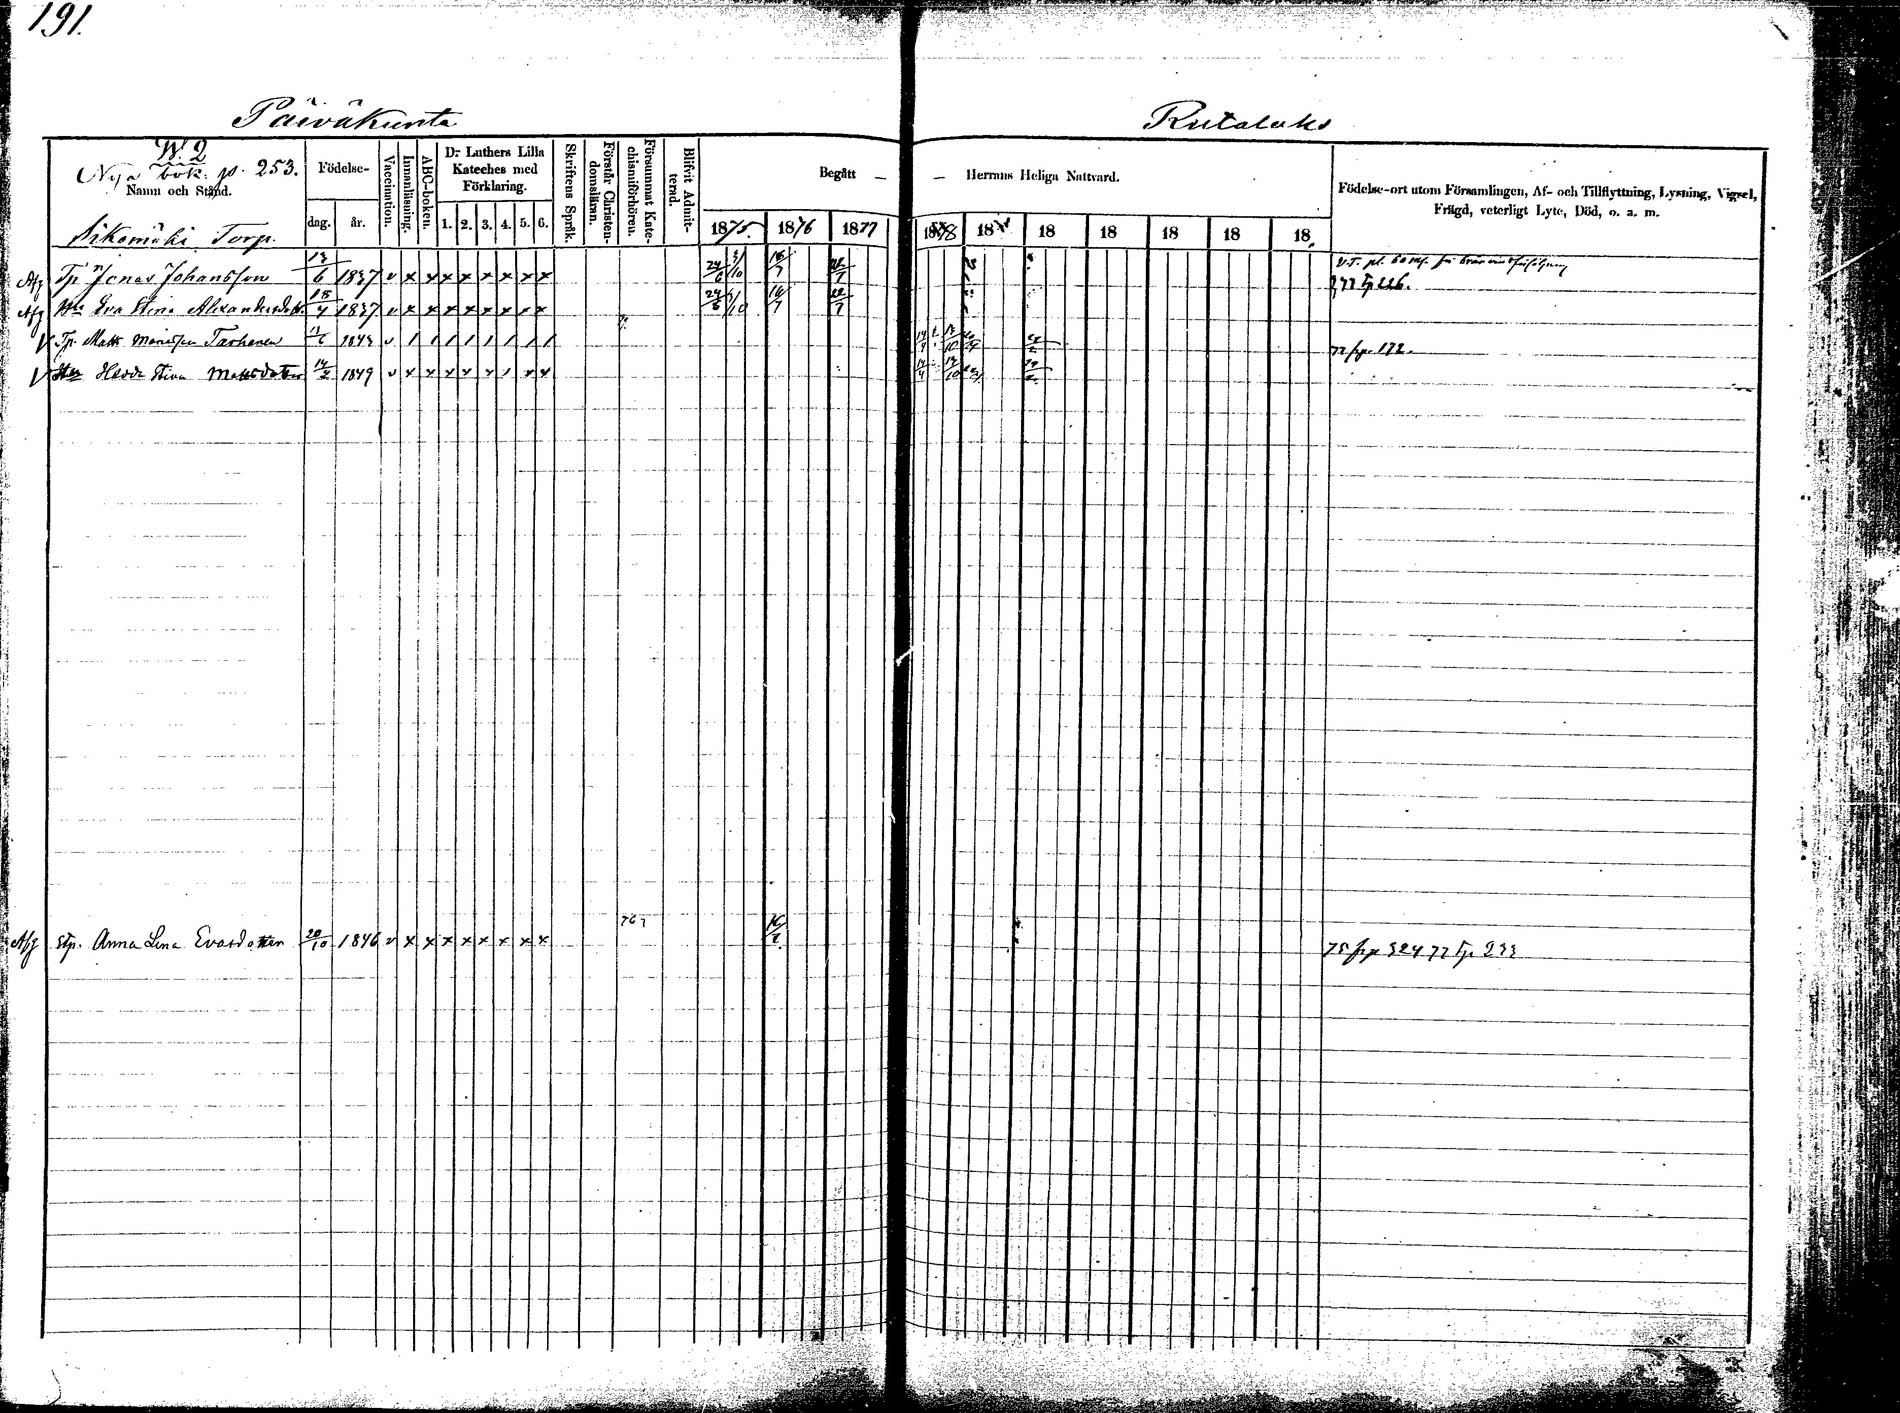 191.
Päiväkunta Rutalaks
N:2
Nya bok. p. 253.
Namn och Stånd.
Födelse-
dag. år.
Vaccination.
Innanläsning.
ABC-boken.
D:r Luthers Lilla Kateches med Förklaring.
1. 2. 3. 4. 5. 6.
Skriftens Språk.
Förstår Christendomsläran.
Försummat Katechismiförhören.
Blifvit Admitterad.
Begått — — Herrans Heliga Nattvard.
1875. 1876 1877 1878 18 18 18 18 18 18
Födelse-ort utom Församlingen, Af- och Tillflyttning, Lysning, Vigsel,
Frägd, veterligt Lyte, Död, o. a. m.
Sikomäki Torp.
Afg Tp Jonas Johansson 13/6 1837 v x x x x x x x x 24/6 3/10 16/7 22/7
77 Tp 226.
Afg Hu Eva Stina Alexandersdotter 18/4 1837 v x x x x x x x x 24/6 3/10 16/7 22/7
V Tp. Matts Tarhanen 11/6 1843 v / / / / / / / /
77 frp. 172.
V Hu Hedda Stina Mattsdotter 14/2 1849 v x x x x x / x x
Afg Stp. Anna Lena Evasdotter 20/10 1846 v x x x x x x x x 76 16/7
75 frp 324 77 Tp 233